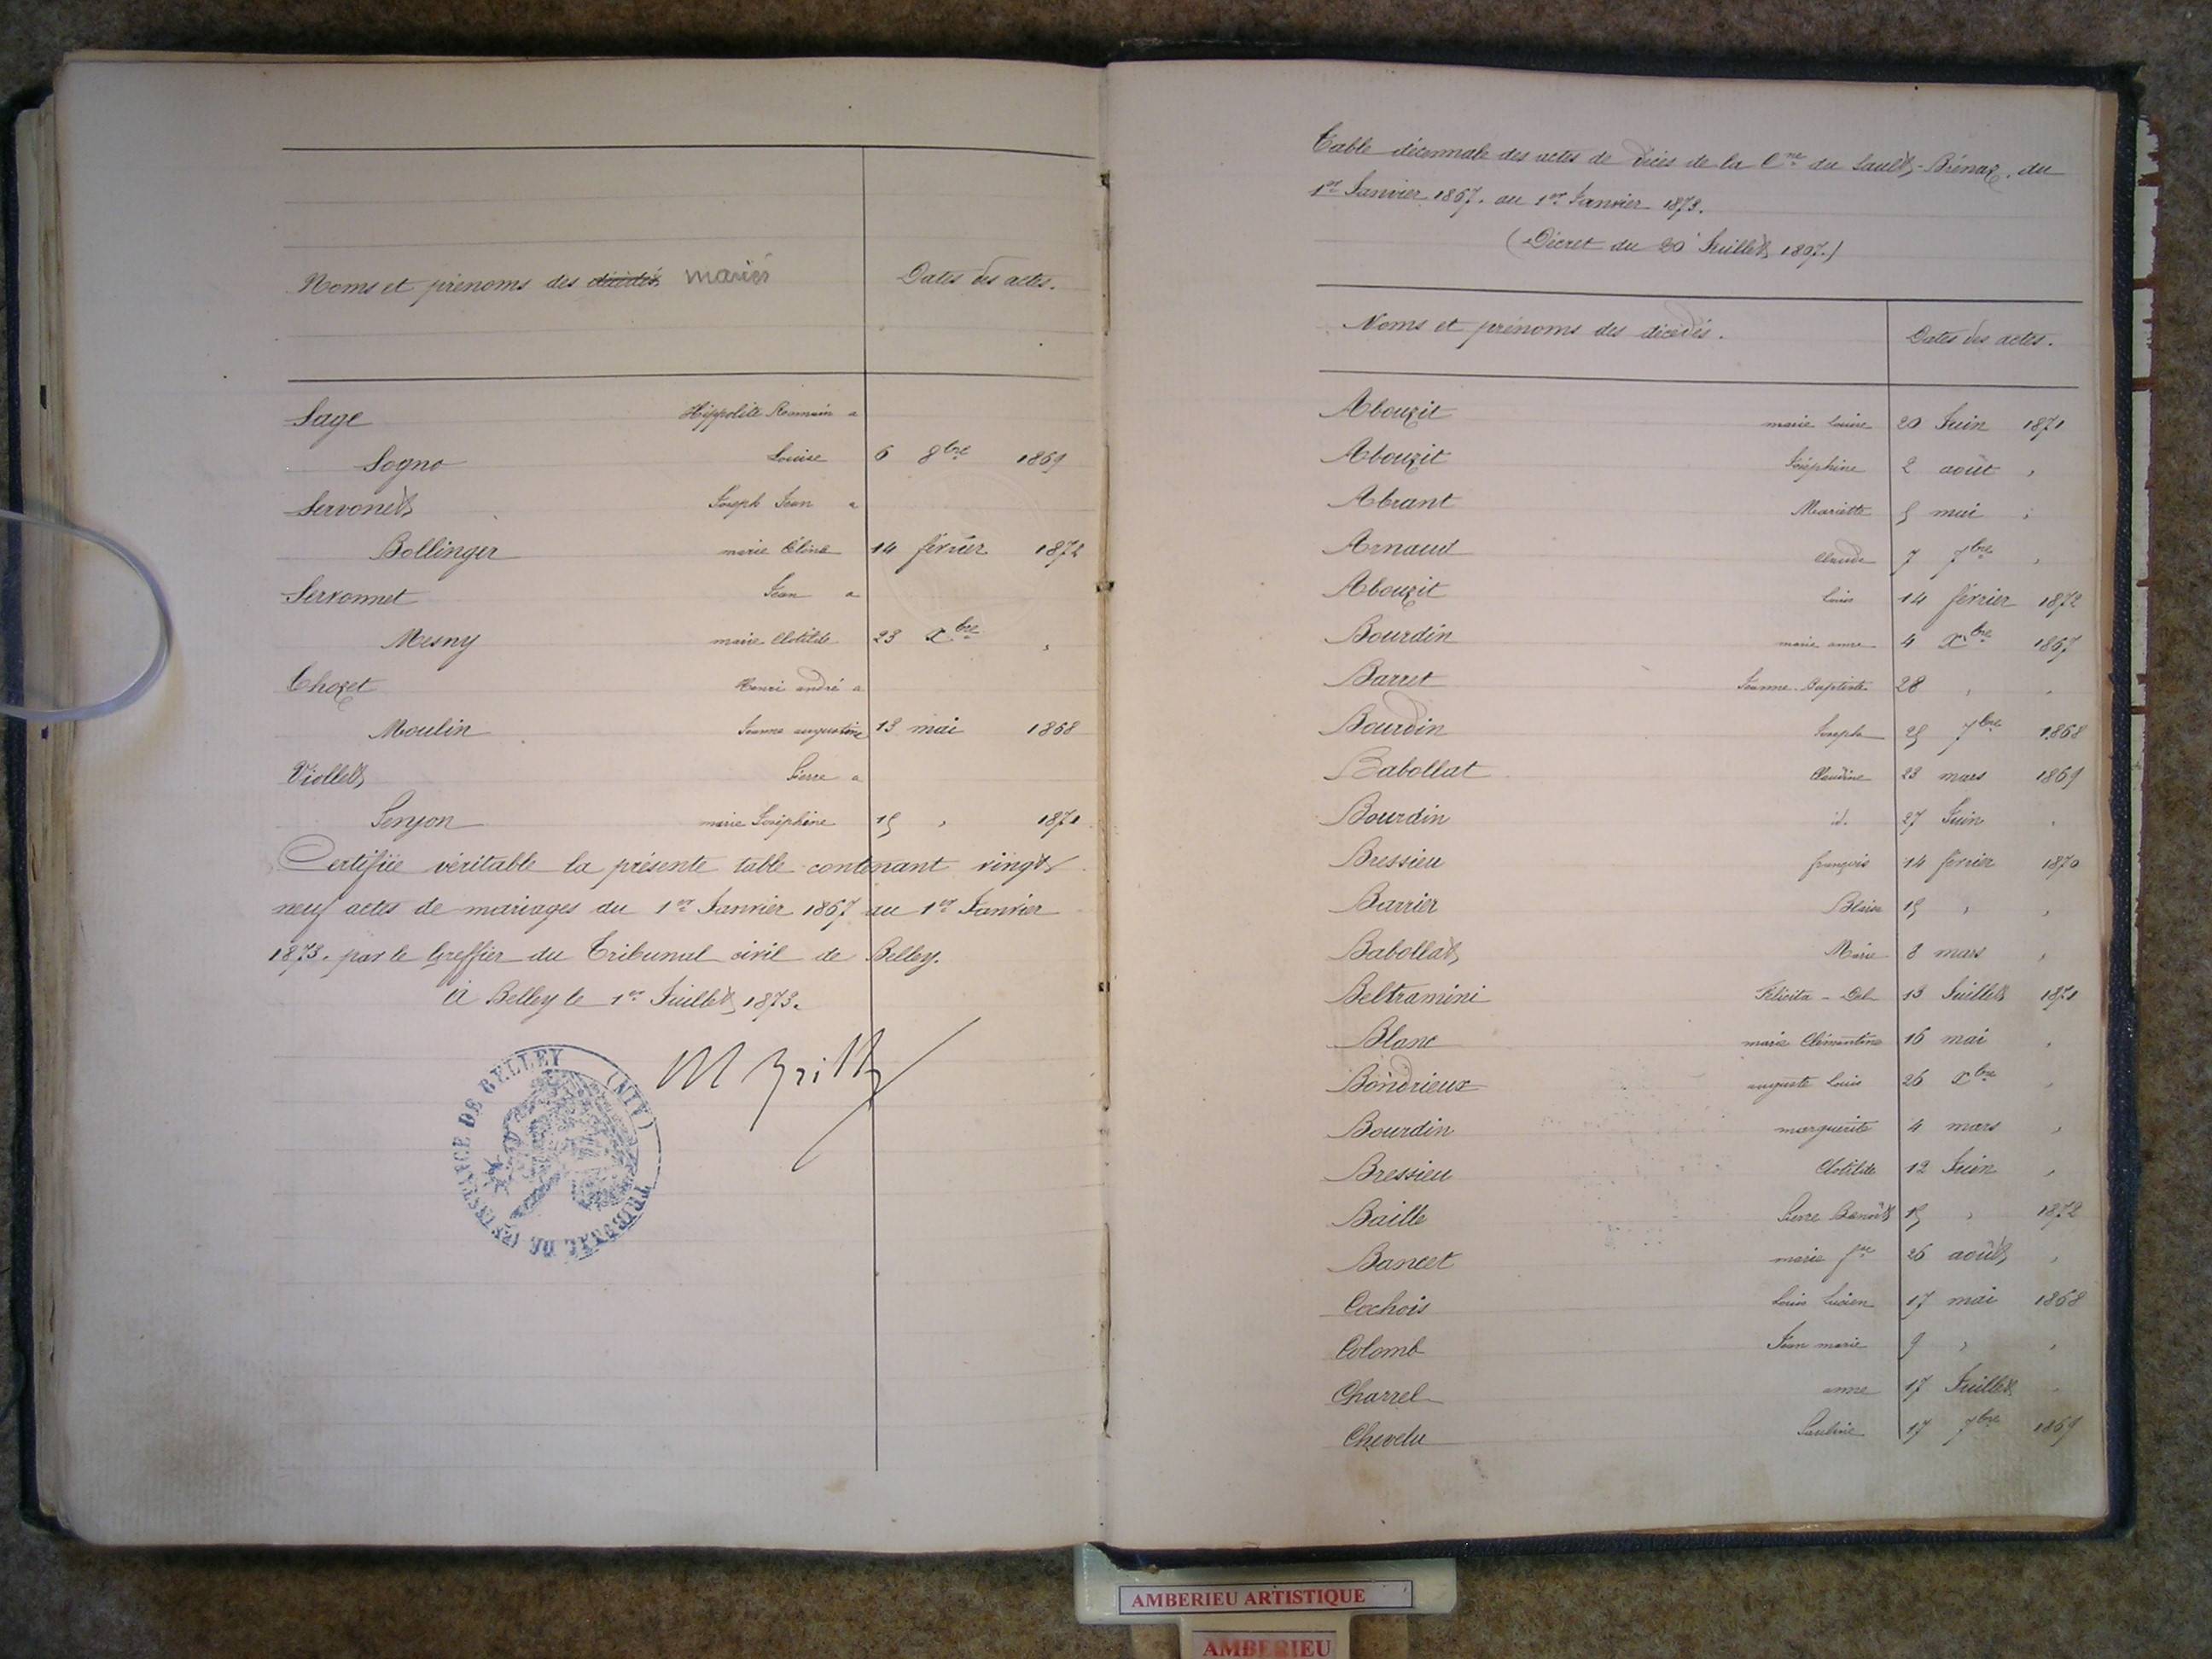 Noms et prénoms des décédés mariés Dates des actes.
Sage Hippolite Romain a
Sogno Louise 6 8bre 1869
Servonet Joseph Jean a
Bollinger marie Elina 14 février 1872
Servonnet Jean a
Mesny marie Clotilde 23 Xbre "
Thozet Henri andré a
Moulin Jeanne augustine 13 mai 1868
Viollet Pierre a
Senjon marie Joséphine 15 " 1871
Certifiée véritable la présente table contenant vingt
neuf actes de mariages du 1er Janvier 1867 au 1er Janvier
1873. par le Greffier du Tribunal civil de Belley.
à Belley le 1er Juillet 1873.
TRIBUNAL DE 1re INSTANCE DE BELLEY (AIN)
Table décennale des actes de décès de la Cne du Sault-Brénaz, du
1er Janvier 1867. au 1er Janvier 1873.
(Décret du 20 Juillet 1807.)
Noms et prénoms des décédés. Dates des actes.
Abouzit marie Louise 20 Juin 1871
Abouzit Joséphine 2 août "
Abrant Mariette 5 mai "
Arnaud Claude 7 7bre "
Abouzit Louis 14 février 1872
Bourdin marie anne 4 Xbre 1867
Barret Jeanne-Baptiste 28 " "
Bourdin Joseph 25 7bre 1868
Babollat Claudine 23 mars 1869
Bourdin id. 27 Juin "
Bressieu françois 14 février 1870
Barrier Blaise 15 " "
Babollat Marie 8 mars "
Beltramini Félicita - 13 Juillet 1871
Blanc marie Clémentine 16 mai "
Bondrieux auguste Louis 26 Xbre "
Bourdin marguerite 4 mars "
Bressieu Clotilde 12 Juin "
Baille Pierre Benoît 15 " 1872
Bancet marie 26 août "
Cochois Louis Lucien 17 mai 1868
Colomb Jean marie 9 " "
Charrel anne 17 Juillet "
Chevelu Pauline 17 7bre 1869
AMBERIEU ARTISTIQUE
AMBERIEU